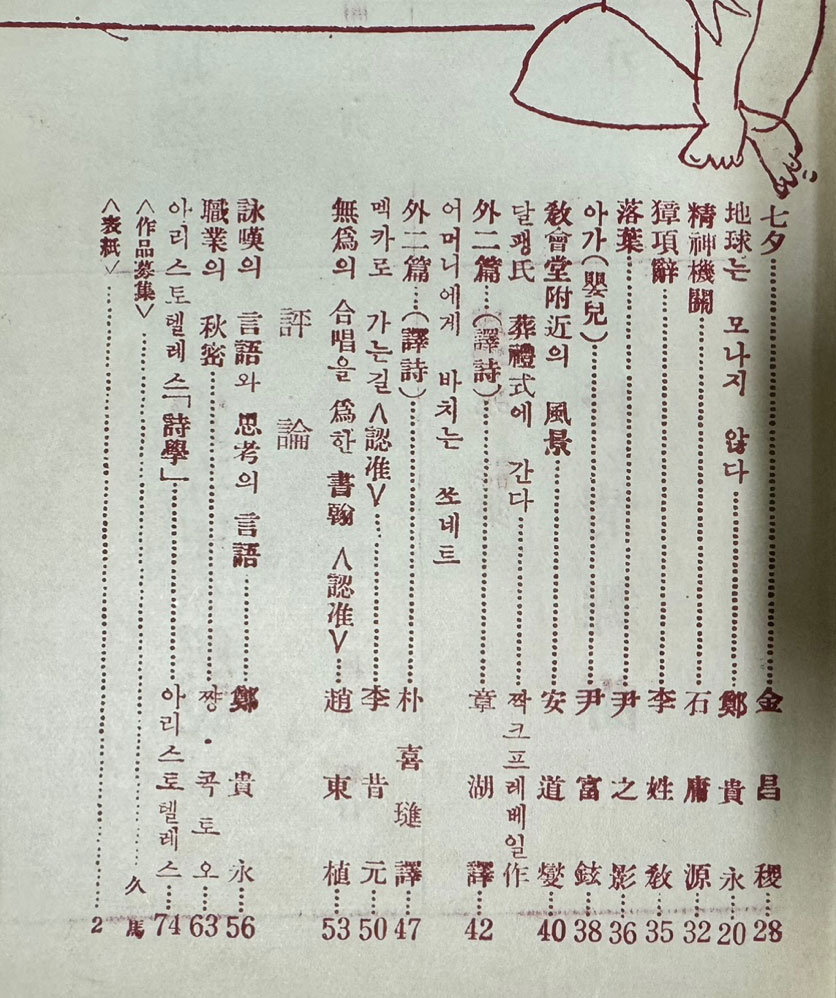 七夕……金昌稷……28
地球는 모나지 않다……鄭貴永……20
精神機關……石庸源……32
獐項辭……李姓教……35
落葉……尹之影……36
아가(嬰兒)……尹富鉉……38
敎會堂附近의 風景……安道燮……40
달팽氏 葬禮式에 간다……짝크프레베일作
外二篇……(譯詩)……章湖譯……42
어머니에게 바치는 쏘네트
外二篇……(譯詩)……朴喜璡譯……47
멕카로 가는길 <認准>……李昔元……50
無爲의 合唱을 爲한 書翰 <認准>……趙東植……53
評論
詠嘆의 言語와 思考의 言語……鄭貴永……56
職業의 秋密……쨩·콕토오……63
아리스토텔레스「詩學」……아리스토텔레스……74
<作品募集>……久馬
<表紙>……2